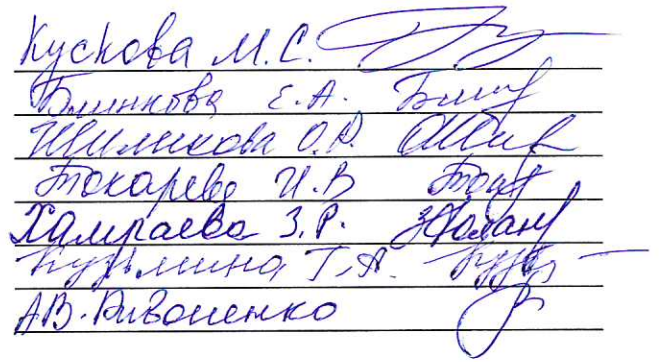 Кускова М.С.
Блинкова Е.А.
Шиликова О.В.
Токарева И.В
Хамраева З.Р.
Кузьмина Т.А.
А.В. Пивоненко